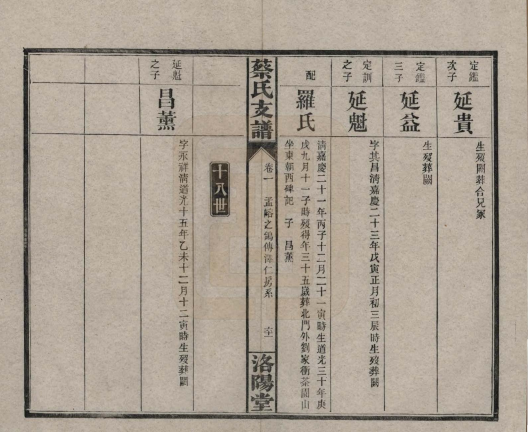 定鑑次子
延貴
生殁闕葬合兄冢
定鑑三子
延益
生殁葬闕
定訓之子
延魁
字其昌清嘉慶二十三年戊寅正月初三辰時生殁葬闕
配
羅氏
清嘉慶二十一年丙子十二月二十一寅時生道光三十年庚
戌九月十一子時殁得年三十五歲葬北門外劉家衝茶園山
坐東朝西碑記 子 昌薰
蔡氏支譜
卷一
洛陽堂
十八世
延魁之子
昌薰
字永祥清道光十五年乙未十二月十二寅時生殁葬闕